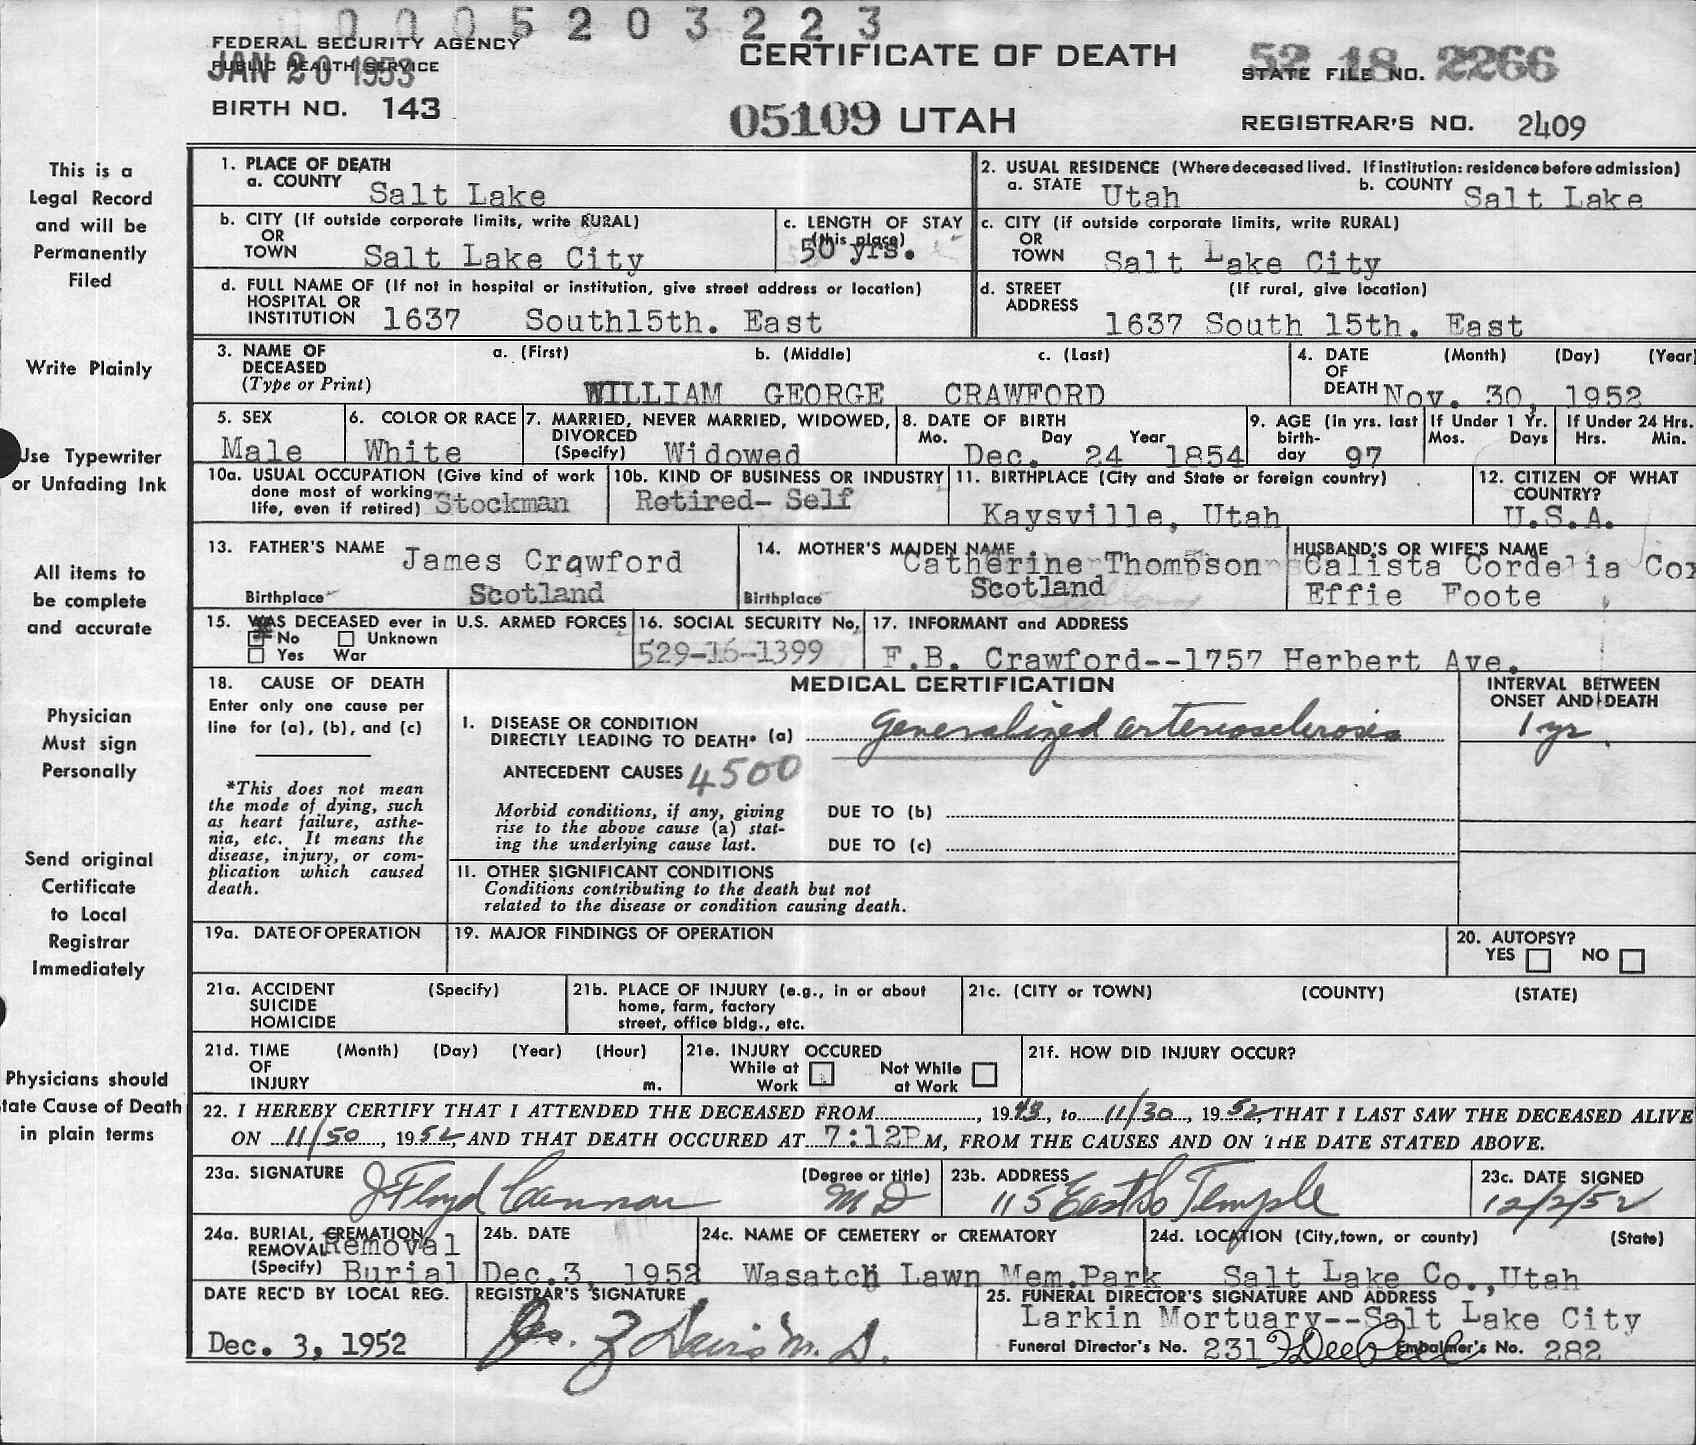 0005203223
FEDERAL SECURITY AGENCY
PUBLIC HEALTH SERVICE
JAN 20 1953
BIRTH NO. 143
CERTIFICATE OF DEATH
05109 UTAH
STATE FILE NO. 52 18 2266
REGISTRAR'S NO. 2409
This is a
Legal Record
and will be
Permanently
Filed
Write Plainly
Use Typewriter
or Unfading Ink
All items to
be complete
and accurate
Physician
Must sign
Personally
Send original
Certificate
to Local
Registrar
Immediately
Physicians should
tate Cause of Death
in plain terms
1. PLACE OF DEATH
a. COUNTY Salt Lake
2. USUAL RESIDENCE (Where deceased lived. If institution: residence before admission)
a. STATE Utah b. COUNTY Salt Lake
b. CITY (If outside corporate limits, write RURAL)
OR
TOWN Salt Lake City
c. LENGTH OF STAY
(this place)
50 yrs.
c. CITY (if outside corporate limits, write RURAL)
OR
TOWN Salt Lake City
d. FULL NAME OF (If not in hospital or institution, give street address or location)
HOSPITAL OR
INSTITUTION 1637 South15th. East
d. STREET (If rural, give location)
ADDRESS
1637 South 15th. East
3. NAME OF a. (First) b. (Middle) c. (Last)
DECEASED
(Type or Print)
WILLIAM GEORGE CRAWFORD
4. DATE (Month) (Day) (Year)
OF
DEATH Nov. 30, 1952
5. SEX
Male
6. COLOR OR RACE
White
7. MARRIED, NEVER MARRIED, WIDOWED,
DIVORCED
(Specify) Widowed
8. DATE OF BIRTH
Mo. Day Year
Dec. 24 1854
9. AGE (in yrs. last
birth-
day 97
If Under 1 Yr.
Mos. Days
If Under 24 Hrs.
Hrs. Min.
10a. USUAL OCCUPATION (Give kind of work
done most of working
life, even if retired) Stockman
10b. KIND OF BUSINESS OR INDUSTRY
Retired- Self
11. BIRTHPLACE (City and State or foreign country)
Kaysville, Utah
12. CITIZEN OF WHAT
COUNTRY?
U.S.A.
13. FATHER'S NAME James Crawford
Birthplace Scotland
14. MOTHER'S MAIDEN NAME
Catherine Thompson
Birthplace Scotland
HUSBAND'S OR WIFE'S NAME
Calista Cordelia Cox
Effie Foote
15. WAS DECEASED ever in U.S. ARMED FORCES
No Unknown
Yes War
16. SOCIAL SECURITY No.
529-16-1399
17. INFORMANT and ADDRESS
F.B. Crawford--1757 Herbert Ave.
18. CAUSE OF DEATH
Enter only one cause per
line for (a), (b), and (c)
*This does not mean
the mode of dying, such
as heart failure, asthe-
nia, etc. It means the
disease, injury, or com-
plication which caused
death.
MEDICAL CERTIFICATION
INTERVAL BETWEEN
ONSET AND DEATH
I. DISEASE OR CONDITION
DIRECTLY LEADING TO DEATH* (a) Generalized arteriosclerosis
1 yr
ANTECEDENT CAUSES 4500
Morbid conditions, if any, giving
rise to the above cause (a) stat-
ing the underlying cause last.
DUE TO (b)
DUE TO (c)
II. OTHER SIGNIFICANT CONDITIONS
Conditions contributing to the death but not
related to the disease or condition causing death.
19a. DATE OF OPERATION
19. MAJOR FINDINGS OF OPERATION
20. AUTOPSY?
YES NO
21a. ACCIDENT (Specify)
SUICIDE
HOMICIDE
21b. PLACE OF INJURY (e.g., in or about
home, farm, factory
street, office bldg., etc.
21c. (CITY or TOWN) (COUNTY) (STATE)
21d. TIME (Month) (Day) (Year) (Hour)
OF
INJURY m.
21e. INJURY OCCURED
While at Work
Not While at Work
21f. HOW DID INJURY OCCUR?
22. I HEREBY CERTIFY THAT I ATTENDED THE DECEASED FROM , 1943, to 11/30, 1952, THAT I LAST SAW THE DECEASED ALIVE
ON 11/50, 1952 AND THAT DEATH OCCURED AT 7:12P M, FROM THE CAUSES AND ON THE DATE STATED ABOVE.
23a. SIGNATURE J Floyd Cannon
(Degree or title)
M D
23b. ADDRESS
115 East So Temple
23c. DATE SIGNED
12/2/52
24a. BURIAL, CREMATION,
REMOVAL Removal
(Specify) Burial
24b. DATE
Dec.3, 1952
24c. NAME OF CEMETERY or CREMATORY
Wasatch Lawn Mem.Park
24d. LOCATION (City,town, or county) (State)
Salt Lake Co.,Utah
DATE REC'D BY LOCAL REG.
Dec. 3, 1952
REGISTRAR'S SIGNATURE
M. D.
25. FUNERAL DIRECTOR'S SIGNATURE AND ADDRESS
Larkin Mortuary--Salt Lake City
Funeral Director's No. 231 Embalmer's No. 282